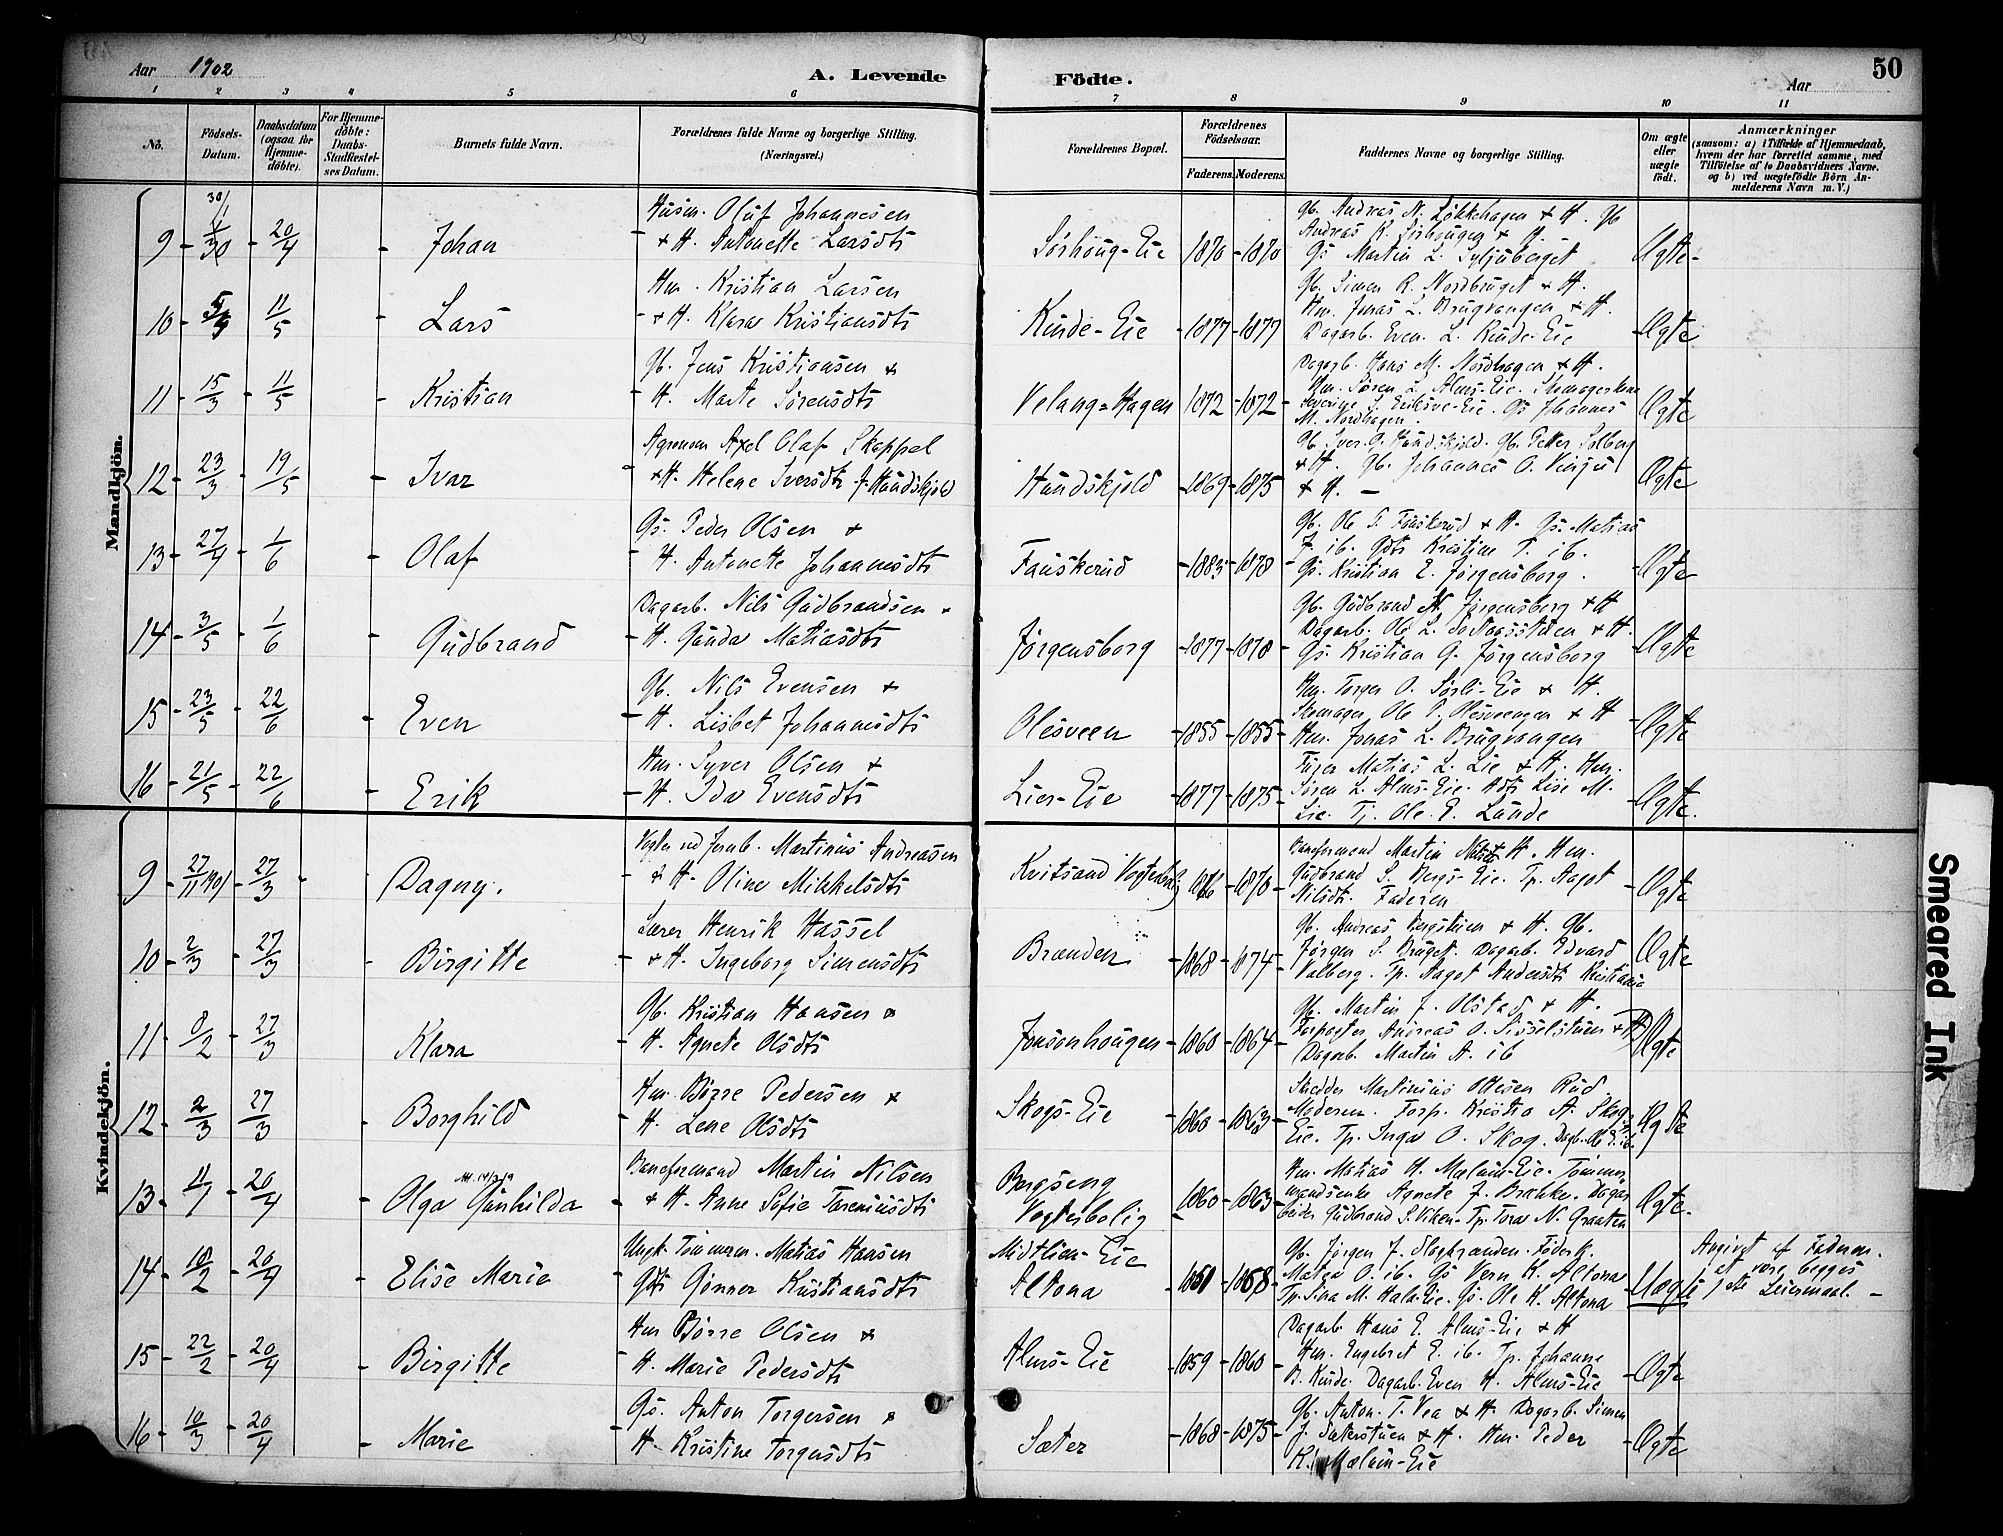 Aar 1902
A. Levende
Födte.
Aar
50
1 2 3 4 5 6 7 8 9 10 11
No.
Födsels-
Datum.
Daabsdatum
(ogsaa for
Hjemme-
döbte).
For Hjemme-
döbte:
Daabs-
Stadfæstel-
ses Datum.
Barnets fulde Navn.
Forældrenes fulde Navne og borgerlige Stilling.
(Næringsvei.)
Forældrenes Bopæl.
Forældrenes
Födselsaar.
Faderens.
Moderens.
Faddernes Navne og borgerlige Stilling.
Om ægte
eller
uægte
födt.
Anmærkninger
(saasom: a) i Tilfælde af Hjemmedaab,
hvem der har forrettet samme, med
Tilföielse af to Daabsvidners Navne,
og b) ved uægtefödte Börn An-
melderens Navn m. V.)
Mandkjön.
9 30/1 20/4 Johan
Husm. Oluf Johannesen
+ H. Antonette Larsdtr
Sørhoug-Eie 1870 - 1870
Gb. Andreas N. Løkkehagen + H. Gb
Andreas K. Sørhougen + H.
Gs Martin L. Syljuberget
Ægte
10 5/3 11/5 Lars
Hm. Kristian Larsen
+ H. Klara Kristiansdtr
Kinde-Eie 1877 - 1877
Gb. Simen R. Nordbruget + H.
Hm. Jonas L. Brugvangen + H.
Dagarb. Even L. Kinde-Eie
Ægte
11 15/3 11/5 Kristian
Gb. Jens Kristiansen +
H. Marte Sørensdtr
Velang-Hagen 1872 - 1872
Dagarb. Hans M. Nordhagen + H.
Hm. Søren L. Alms-Eie.
Gs Johannes
M. Nordhagen.
Ægte
12 23/3 19/5 Ivar
Agronom Axel Olaf Skappel
+ H. Helene Iversdtr f. Hundskjold
Hundskjold 1869 - 1875
Gb Iver O. Hundskjold. Gb. Petter Solberg
+ H. Gb. Johannes O. Vinju
+ H. —
Ægte
13 27/4 1/6 Olaf
Gs. Peder Olsen +
H. Antonette Johannesdtr
Fauskerud 1883 - 1878
Gb. Ole P. Fauskerud + H. Gs. Matias
ib. Gdtr Kristine P. ib.
Gs. Kristian E. Jørgensborg.
Ægte
14 3/5 1/6 Gudbrand
Dagarb. Nils Gudbrandsen +
H. Gunda Matiasdtr
Jørgensborg 1877 - 1878
Gb. Gudbrand N. Jørgensborg + H
Dagarb. Ole L. + H.
Gs. Kristian G. Jørgensborg
Ægte
15 23/5 22/6 Even
Gb. Nils Evensen +
H. Lisbet Johannesdtr
Olesveen 1855 - 1855
Hm. Torger O. Sørli-Eie + H.
Skomager Ole P. Olesveengen + H
Hm. Jonas L. Brugvangen
Ægte
16 21/5 22/6 Erik
Hm. Syver Olsen +
H. Ida Evensdtr
Lier-Eie 1877 - 1875
Matias L. Lie + H. Hm.
Søren L. Alms-Eie. Gdtr Lise M.
Lie. Tj. Ole P. Lunde
Ægte.
Kvindekjön.
9 27/11 1901 27/3 Dagny.
Vogter ved Jernb. Martinus Andreasen
+ H. Oline Mikkelsdtr
Kvitsand Vogterbolig 1876
Baneformand Martin + H. Hm.
Gudbrand S. Bergs-Eie. Tp. Aagot
Nilsdtr. Faderen
Ægte
10 2/3 27/3 Birgitte
Lærer Henrik Hassel
+ H. Ingeborg Simensdtr
Brænden 1868 - 1874
Gb. Andreas Bergstuen + H. Gb.
Jørgen S. Bruget. Dagarb. Edvard
Valberg. Tp. Aagot Andersdtr Kristiania
Ægte
11 8/2 27/3 Klara
Gb. Kristian Hansen +
H. Agnete Olsdtr
Jonsonhougen 1860 - 1864
Gb. Martin J. Olstad + H.
Forpagter Andreas O. Sisselstuen + H
Dagarb. Martin A. ib
Ægte
12 2/3 27/3 Borghild
Hm. Børre Pedersen +
H. Lene Olsdtr
Skogs-Eie 1860 - 1863
Skredder Martinius Ottesen Rud
Moderen. Forp. Kristio A. Skogs
Eie. Tp. Inga O. Skog.
Ægte
13 11/1 20/4 Olga Gunhilda
Baneformand Martin Nilsen
+ H. Anne Sofie Tareniusdtr
Bergseng
Vogterbolig 1860 - 1863
Hm. Matias H. Mælum-Eie. Tømmer
mandsenke Agnete J. Brække. Dagar
beider Gudbrand S. Viken. Tp. Tora N. Graaten
Ægte.
14 18/2 20/4 Elise Marie
Ungk. Tømmerm. Matias Hansen
Gdtr Gønner Kristiansdtr
Midtlien-Eie
Altona 1851 - 1858
Gb. Jørgen J. Slagbrænden. Føderk.
Matea O. ib. Gs Vern K. Altona
Tp. Sina M. Hala-Eie. Gs. Ole K. Altona
Uægte
Angivet af Faderen
at være begges
1ste Leiermaal. —
15 22/2 20/4 Birgitte
Hm Børre Olsen +
H. Marie Pedersdtr
Alms-Eie 1859 - 1860
Dagarb. Hans E. Alms-Eie + H
Hm. Engebret E. ib. Tp. Johanne
B. Kinde. Dagarb. Even H. Alms-Eie
Ægte
16 10/3 20/4 Marie
Gs. Anton Torgersen +
H. Kristine Torgersdtr
Sæter 1868 - 1875
Gb. Anton T. Vea + H. Dagarb. Simen
J. Sæterstuen + H. Hm. Peder
K. Mælum-Eie
Ægte
Smeared Ink